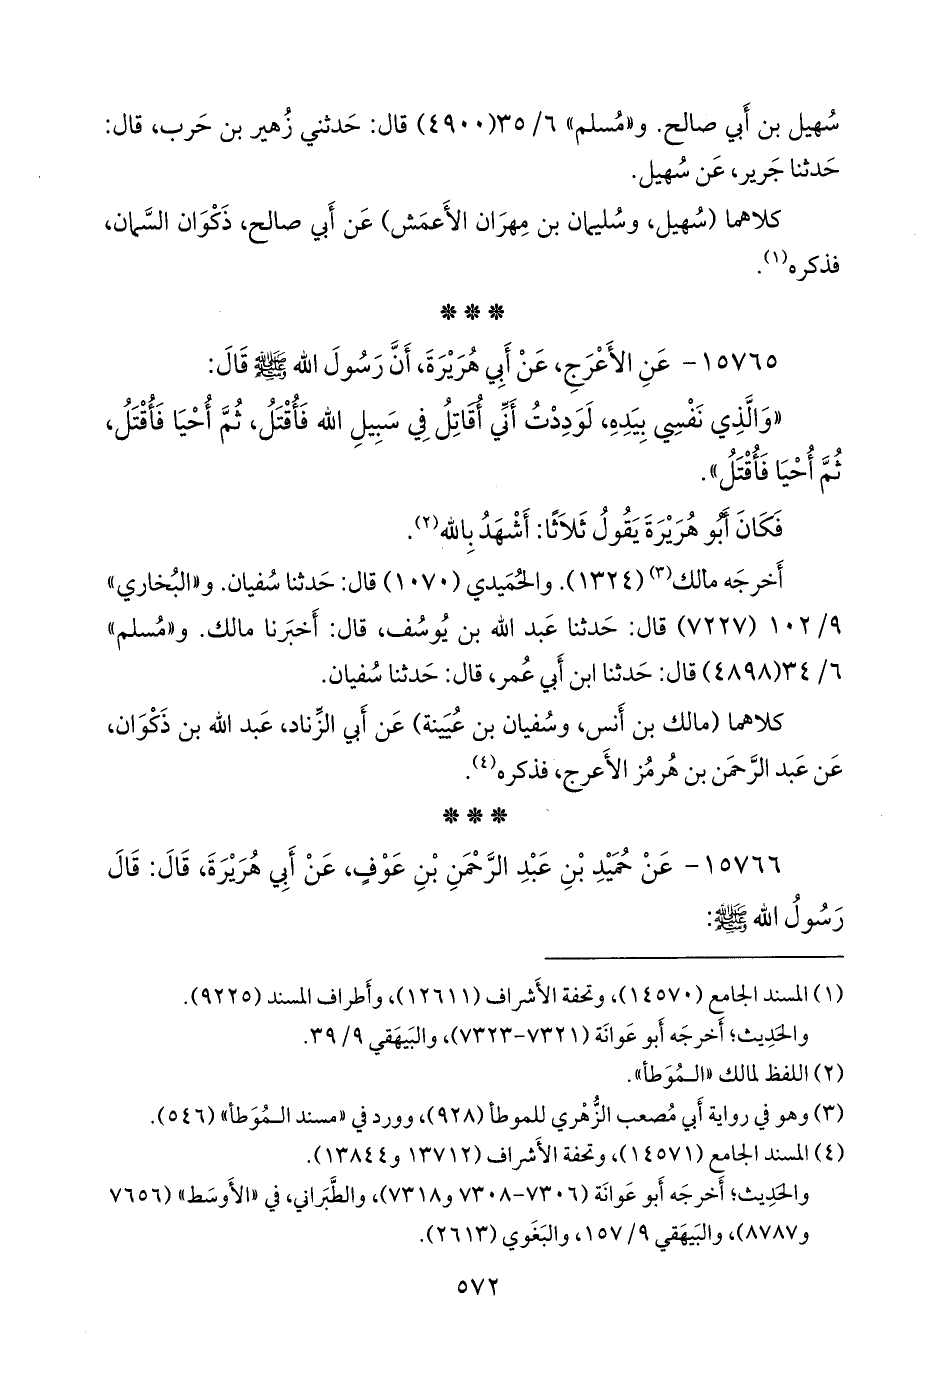 سُهيل بن أَبي صالح. و«مُسلم» ٦/ ٣٥(٤٩٠٠) قال: حَدثني زُهير بن حَرب، قال:
حَدثنا جَرير، عَن سُهيل.
كلاهما (سُهيل، وسُليمان بن مِهران الأَعمَش) عَن أَبي صالح، ذَكْوَان السَّمان،
فذكره(١).
* * *
١٥٧٦٥- عَنِ الأَعْرَجِ، عَنْ أَبِي هُرَيْرَةَ، أَنَّ رَسُولَ الله ﷺ قَالَ:
«وَالَّذِي نَفْسِي بِيَدِهِ، لَوَدِدْتُ أَنِّي أُقَاتِلُ فِي سَبِيلِ الله فَأُقْتَلُ، ثُمَّ أُحْيَا فَأُقْتَلُ،
ثُمَّ أُحْيَا فَأُقْتَلُ».
فَكَانَ أَبُو هُرَيْرَةَ يَقُولُ ثَلاَثًا: أَشْهَدُ بِالله(٢).
أَخرجَه مالك(٣) (١٣٢٤). والحُمَيدي (١٠٧٠) قال: حَدثنا سُفيان. و«البُخاري»
٩/ ١٠٢ (٧٢٢٧) قال: حَدثنا عَبد الله بن يُوسُف، قال: أَخبَرنا مالك. و«مُسلم»
٦/ ٣٤(٤٨٩٨) قال: حَدثنا ابن أَبي عُمر، قال: حَدثنا سُفيان.
كلاهما (مالك بن أَنس، وسُفيان بن عُيَينة) عَن أَبي الزِّناد، عَبد الله بن ذَكْوَان،
عَن عَبد الرَّحمَن بن هُرمُز الأَعرج، فذكره(٤).
* * *
١٥٧٦٦- عَنْ حُمَيْدِ بْنِ عَبْدِ الرَّحْمَنِ بْنِ عَوْفٍ، عَنْ أَبِي هُرَيْرَةَ، قَالَ: قَالَ
رَسُولُ الله ﷺ:
(١) المسند الجامع (١٤٥٧٠)، وتحفة الأَشراف (١٢٦١١)، وأَطراف المسند (٩٢٢٥).
والحَدِيث؛ أَخرجَه أَبو عَوانَة (٧٣٢١-٧٣٢٣)، والبَيهَقي ٩/ ٣٩.
(٢) اللفظ لمالك «الـمُوَطأ».
(٣) وهو في رواية أَبي مُصعب الزُّهْري للموطأ (٩٢٨)، وورد في «مسند الـمُوَطأ» (٥٤٦).
(٤) المسند الجامع (١٤٥٧١)، وتحفة الأَشراف (١٣٧١٢ و١٣٨٤٤).
والحَدِيث؛ أَخرجَه أَبو عَوانَة (٧٣٠٦-٧٣٠٨ و٧٣١٨)، والطَّبَراني، في «الأَوسَط» (٧٦٥٦
و٨٧٨٧)، والبَيهَقي ٩/ ١٥٧، والبَغَوي (٢٦١٣).
٥٧٢